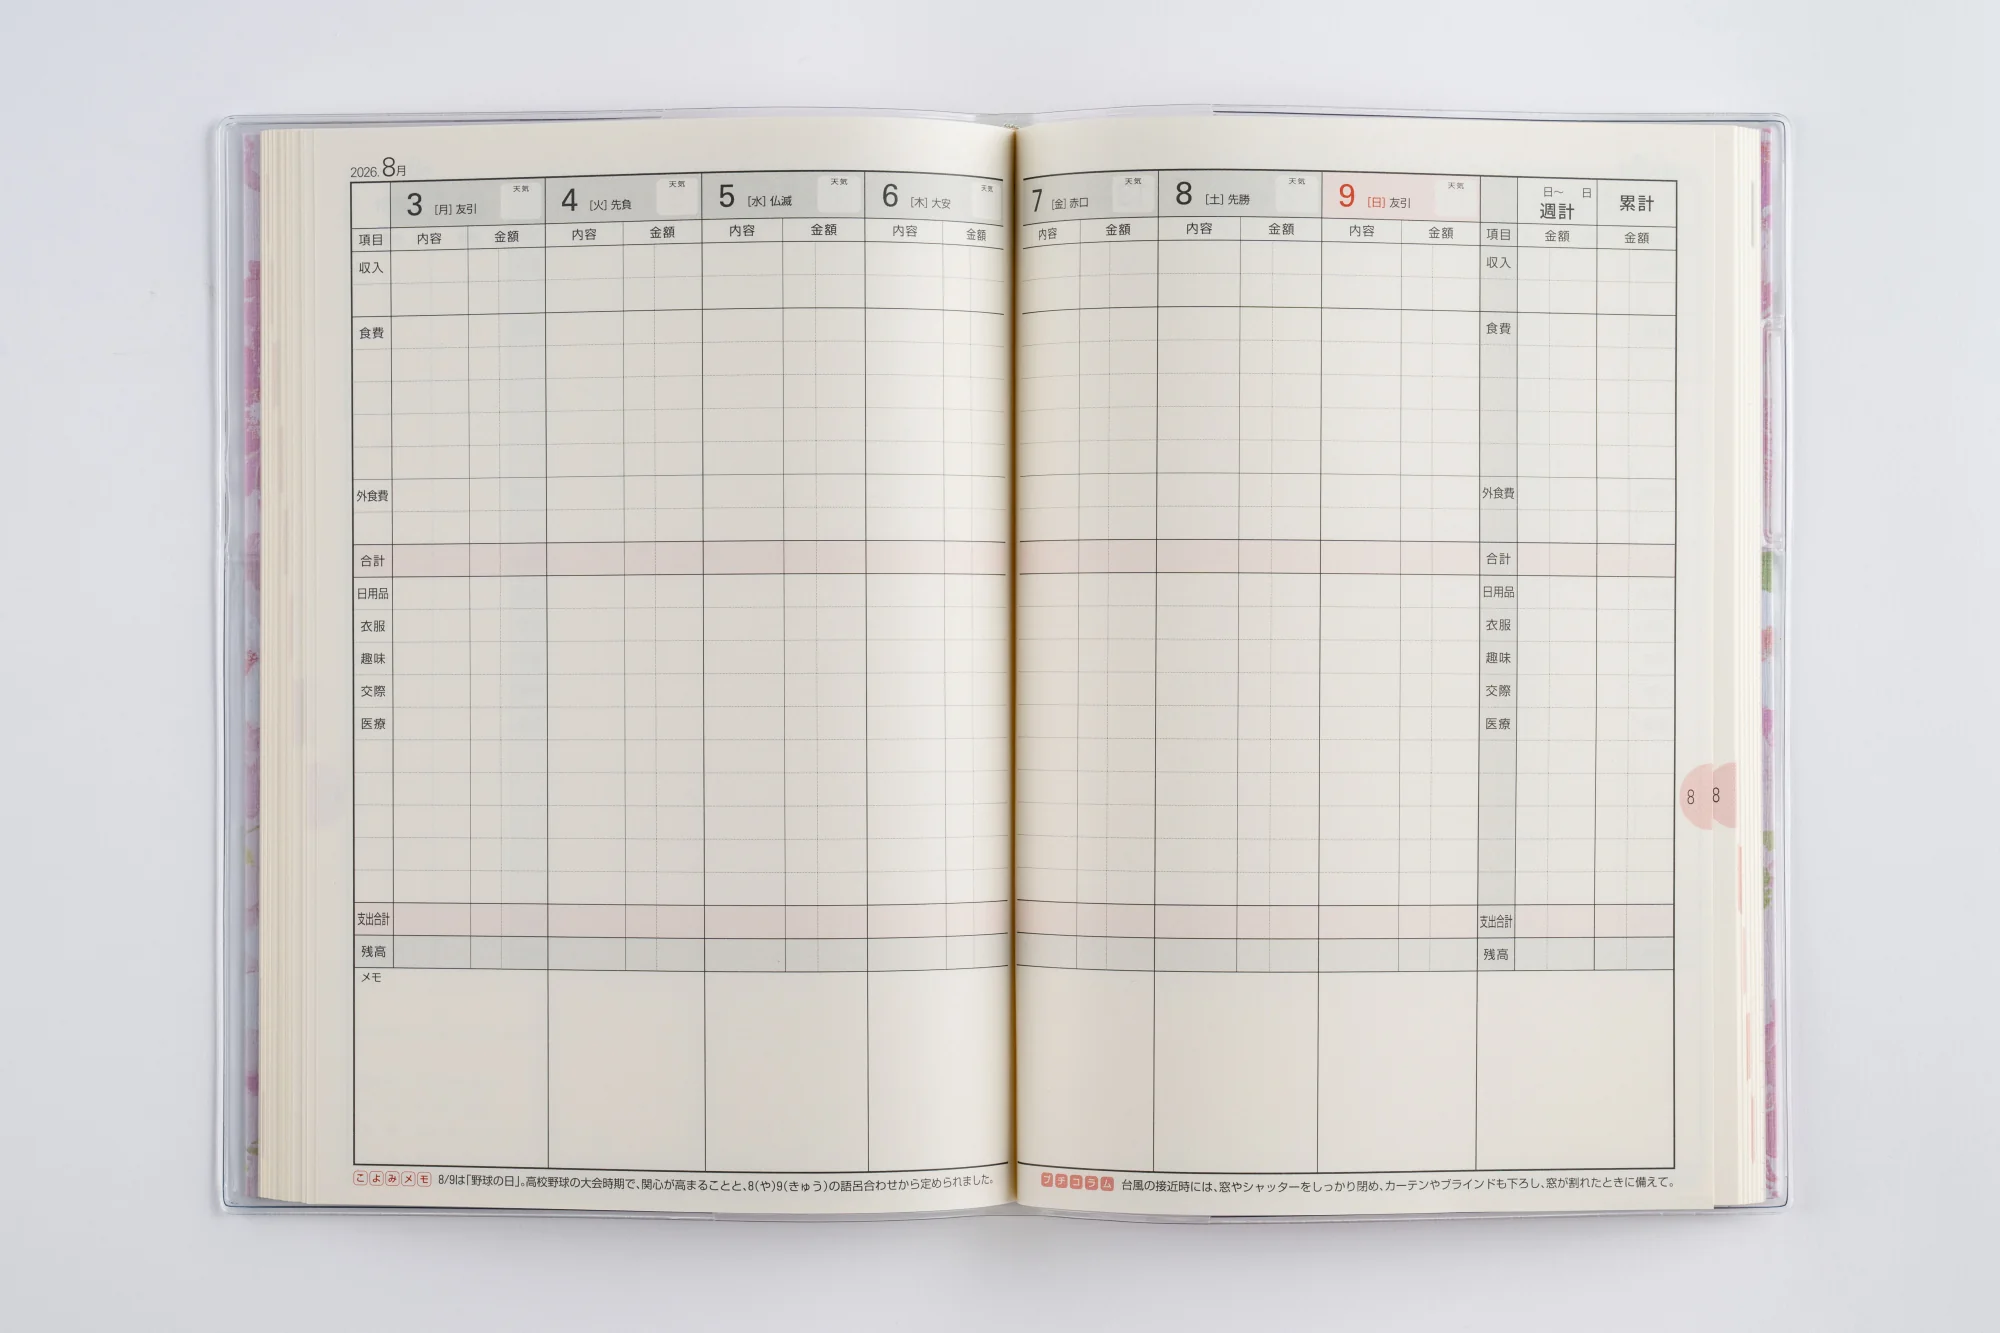 2026. 8月
3 [月] 友引 天気
4 [火] 先負 天気
5 [水] 仏滅 天気
6 [木] 大安 天気
7 [金] 赤口 天気
8 [土] 先勝 天気
9 [日] 友引 天気
日～ 日
週計
累計
項目 内容 金額 内容 金額 内容 金額 内容 金額 内容 金額 内容 金額 内容 金額 項目 金額 金額
収入 収入
食費 食費
外食費 外食費
合計 合計
日用品 日用品
衣服 衣服
趣味 趣味
交際 交際
医療 医療
8 8
支出合計 支出合計
残高 残高
メモ
こよみメモ 8/9は「野球の日」。高校野球の大会時期で、関心が高まることと、8(や)9(きゅう)の語呂合わせから定められました。
プチコラム 台風の接近時には、窓やシャッターをしっかり閉め、カーテンやブラインドも下ろし、窓が割れたときに備えて。